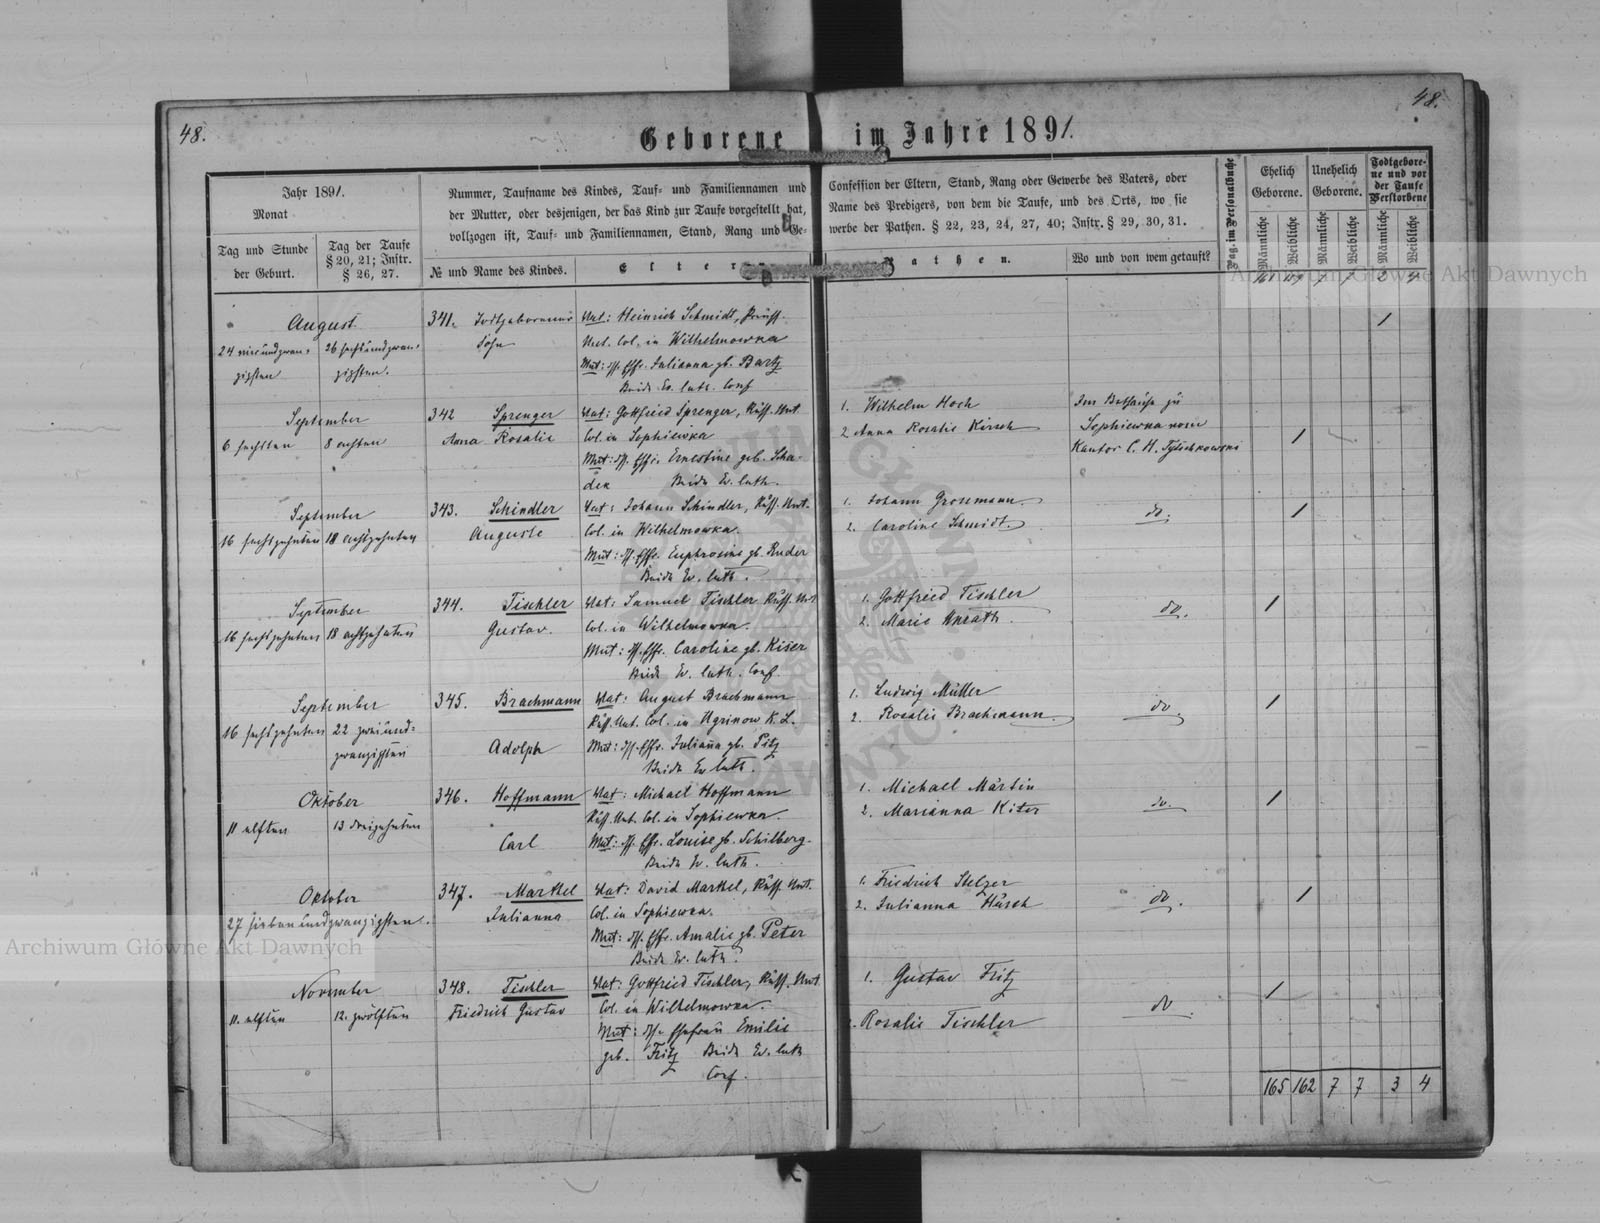 48.
48.
Geborene im Jahre 1891.
Jahr 1891.
Monat
Tag und Stunde
der Geburt.
Tag der Taufe
§ 20, 21; Instr.
§ 26, 27.
Nummer, Taufname des Kindes, Tauf- und Familiennamen und
der Mutter, oder desjenigen, der das Kind zur Taufe vorgestellt hat,
vollzogen ist, Tauf- und Familiennamen, Stand, Rang und Ge-
№ und Name des Kindes.
Eltern
Confession der Eltern, Stand, Rang oder Gewerbe des Vaters, oder
Name des Predigers, von dem die Taufe, und des Orts, wo sie
werbe der Pathen. § 22, 23, 24, 27, 40; Instr. § 29, 30, 31.
Pathen.
Wo und von wem getauft?
Pag. im Personalbuche
Ehelich
Geborene.
Unehelich
Geborene.
Todtgebore-
ne und vor
der Taufe
Verstorbene
Männliche
Weibliche
Männliche
Weibliche
Männliche
Weibliche
161 159 7 7 2 4
August
24 vierundzwan-
zigsten
26 sechsundzwan-
zigsten.
341. Todtgeborener
Sohn
Vat: Heinrich Schmidt, Preuss.
Unt. Col. in Wilhelmowka
Mut: dss. Ehfr. Julianna gb. Bartz
Beide Ev. luth. Conf.
1
September
6 sechsten
8 achten
342 Sprenger
Anna Rosalie
Vat: Gottfried Sprenger, Russ. Unt.
Col. in Sophiewka
Mut: dss. Ehfr. Ernestine geb. Scha-
dek Beide Ev. luth.
1. Wilhelm Hoch
2 Anna Rosalie Kirsch
Im Bethause zu
Sophiewka vom
Kantor C. H. Tytschkowski
1
September
16 sechszehnten
18 achtzehnten
343. Schindler
Auguste
Vat: Johann Schindler, Russ. Unt.
Col. in Wilhelmowka.
Mut: dss. Ehfr. Euphrosine gb. Ruder
Beide Ev. luth.
1. Johann Grossmann
2. Caroline Schmidt.
do.
1
September
16 sechszehnten
18 achtzehnten
344. Tischler
Gustav.
Vat: Samuel Tischler Russ. Unt
Col. in Wilhelmowka.
Mut: dss. Ehfr. Caroline gb. Kiser
Beide Ev. luth. Conf.
1. Gottfried Tischler
2. Marie Knrath
do.
1
September
16 sechszehnten
22 zweiund-
zwanzigsten
345. Brachmann
Adolph
Vat: August Brachmann
Russ. Unt. Col. in Ugrinow K. L.
Mut: dss. Ehfr. Julianna gb. Pitz
Beide Ev. luth.
1. Ludwig Müller
2. Rosalie Brachmann
do.
1
Oktober
11 elften
13 dreizehnten
346. Hoffmann
Carl
Vat: Michael Hoffmann
Russ. Unt. Col. in Sophiewka.
Mut: dss. Ehfr. Louise gb. Schilberg.
Beide Ev. luth.
1. Michael Märtin
2. Marianna Kiter
do.
1
Oktober
27 siebenundzwanzigsten.
347. Markel
Julianna
Vat: David Markel, Russ. Unt.
Col. in Sophiewka.
Mut: dss. Ehfr. Amalie gb. Peter
Beide Ev. luth.
1. Friedrich Stelzer
2. Julianna Hirsch
do.
1
November
11. elften
12. zwölften
348. Tischler
Friedrich Gustav
Vat: Gottfried Tischler, Russ. Unt.
Col. in Wilhelmowka.
Mut: dss. Ehefrau Emilie
geb. Fritz Beide Ev. luth
Conf.
1. Gustav Fritz
2. Rosalie Tischler
do.
1
165 162 7 7 3 4
Archiwum Główne Akt Dawnych
Archiwum Główne Akt Dawnych